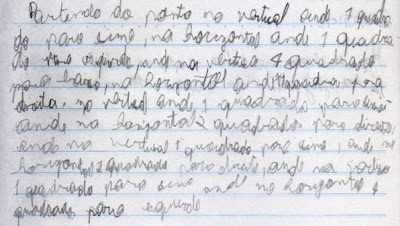 Partindo do ponto na vertical ande 1 quadra
do para sima, na horizontal ande 1 quadra
do para esquerda, ande na vertica 4 quadrados
para baixo, na horizontal ande quadra, para
direita. na vertical ande 1 quadrados para sima
ande na horizontal 2 quadrados para direita,
ande na vertical 1 quadrado para sima, ande na
horizontal 2 quadrado para direita, ande na
1 quadrado para sima ande na horizontal 4
quadrado para esquerdo